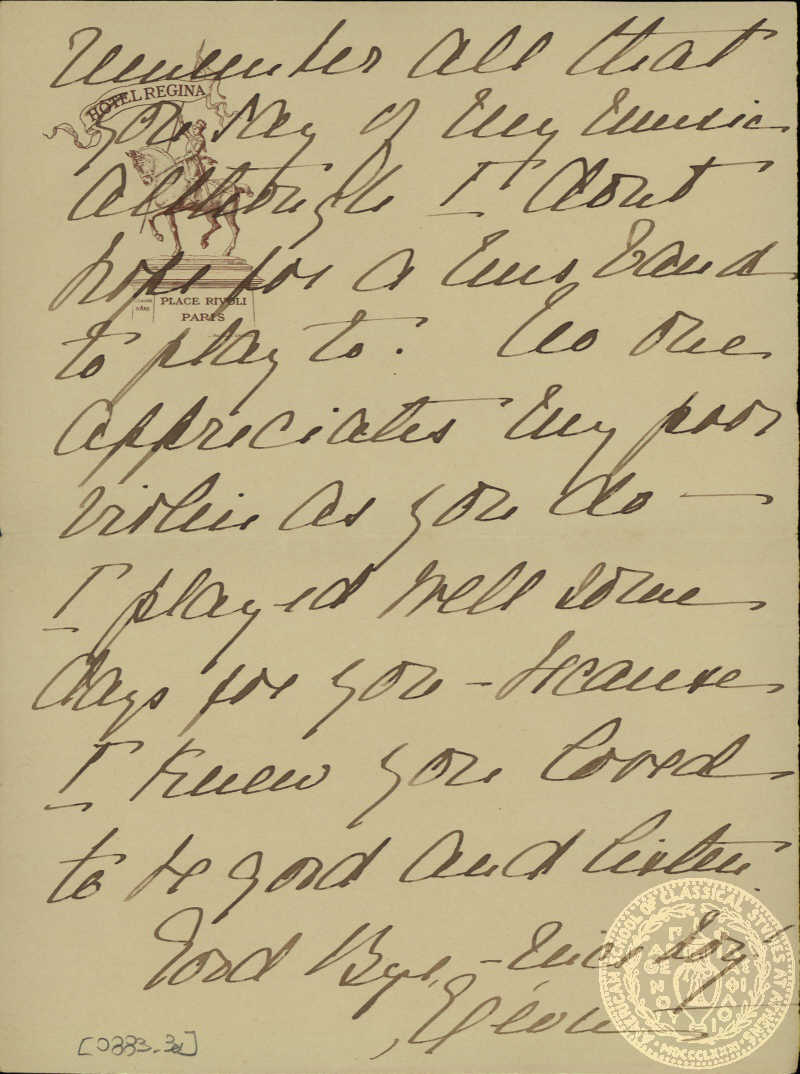 HOTEL REGINA
PLACE RIVOLI
PARIS
remember all that
you say of my music
although I dont
hope for a husband
to play to. No one
appreciates my poor
violin as you do —
I played well some
days for you - because
I knew you loved
to be good and listen.
Good Bye, - nice boy
[0883-3d]
AMERICAN SCHOOL OF CLASSICAL STUDIES AT ATHENS
MDCCCLXXXI